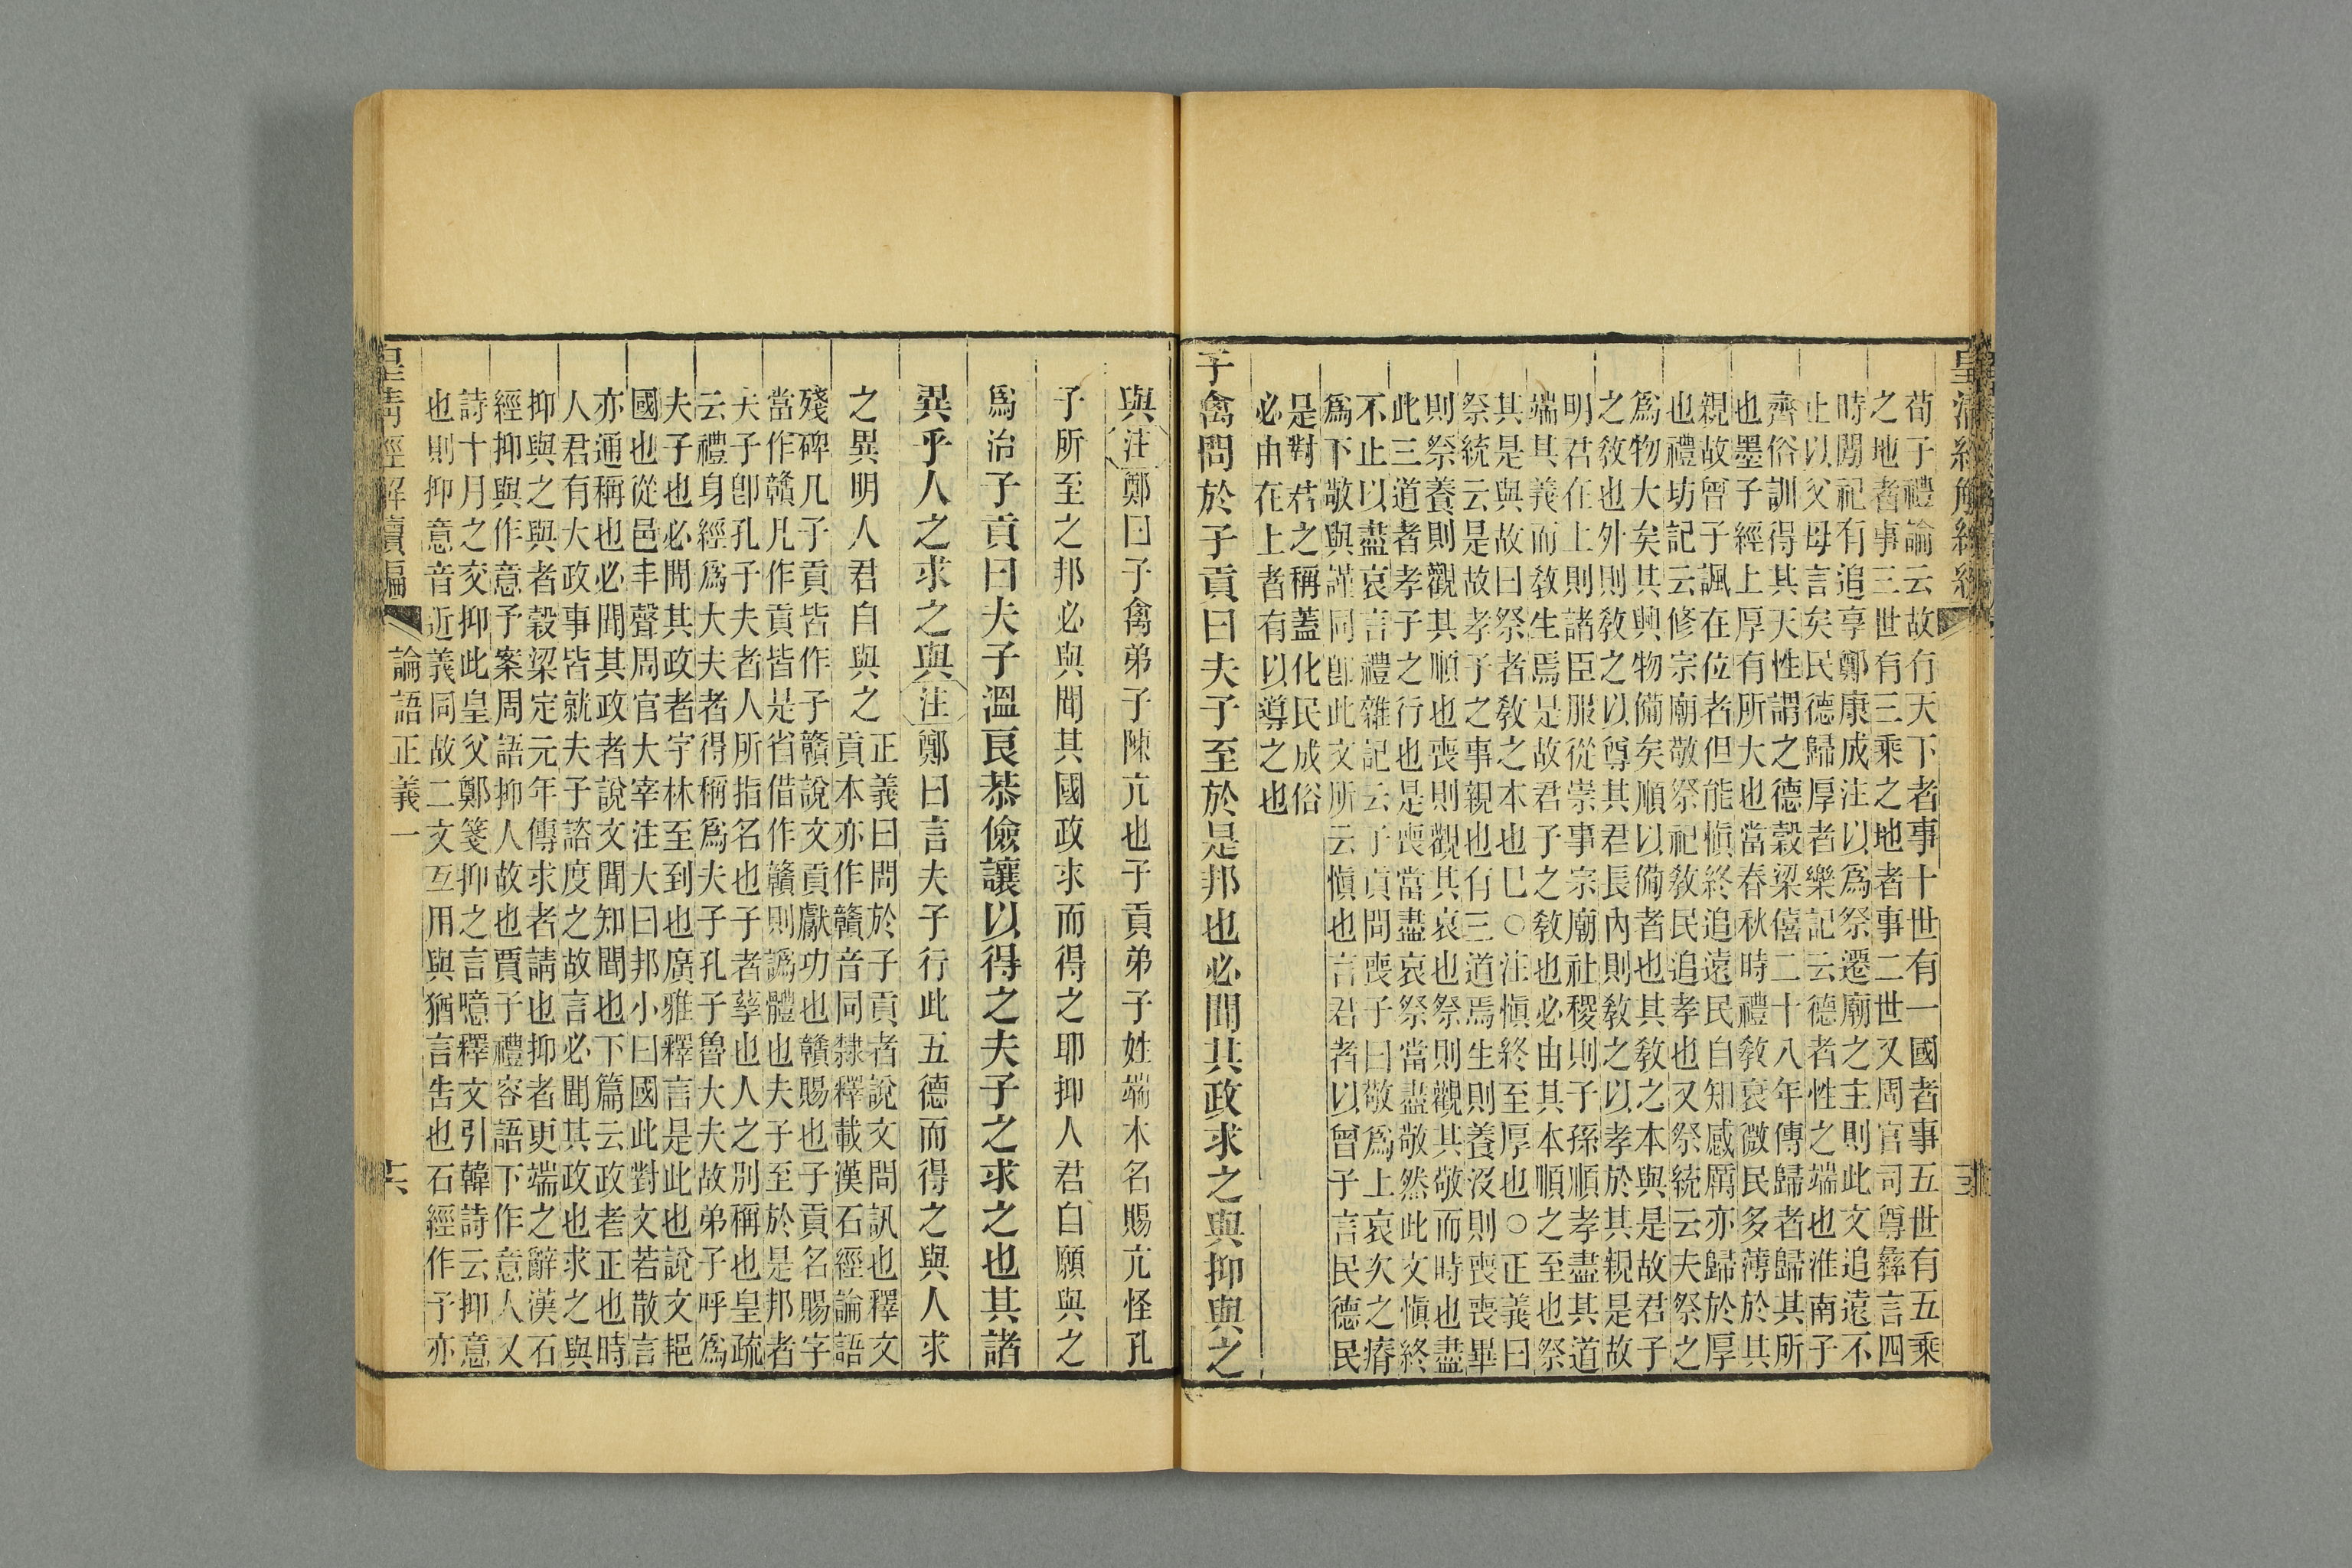 皇清經解續編
荀子禮論云故有天下者事十世有一國者事五世有五乘
之地者事三世有三乘之地者事二世又周官司尊彝言四
時閒祀有追享鄭康成注以爲祭遷廟之主則此文追遠不
止以父母言矣民德歸厚者樂記云德者性之端也淮南子
齊俗訓得其天性謂之德穀梁僖二十八年傳歸者歸其所
也墨子經上厚有所大也當春秋時禮敎衰微民多薄於其
親故曾子諷在位者但能愼終追遠民自知感厲亦歸於厚
也禮坊記云修宗廟敬祭祀敎民追孝也又祭統云夫祭之
爲物大矣其興物備矣順以備者也其敎之本與是故君子
之敎也外則敎之以尊其君長內則敎之以孝於其親是故
明君在上則諸臣服從崇事宗廟社稷則子孫順孝盡其道
端其義而敎生焉是故君子之敎也必由其本順之至也祭
其是與故曰祭者敎之本也已○注愼終至厚也○正義曰
祭統云是故孝子之事親也有三道焉生則養沒則喪喪畢
則祭養則觀其順也喪則觀其哀也祭則觀其敬而時也盡
此三道者孝子之行也是喪當盡哀祭當盡敬然此文愼終
不止以盡哀言禮雜記云子貢問喪子曰敬爲上哀次之瘠
爲下敬與謹同卽此文所云愼也言君者以曾子言民德民
是對君之稱蓋化民成俗
必由在上者有以導之也
子禽問於子貢曰夫子至於是邦也必聞其政求之與抑與之
與注鄭曰子禽弟子陳亢也子貢弟子姓端木名賜亢怪孔
子所至之邦必與聞其國政求而得之耶抑人君自願與之
爲治子貢曰夫子溫良恭儉讓以得之夫子之求之也其諸
異乎人之求之與注鄭曰言夫子行此五德而得之與人求
之異明人君自與之
正義曰問於子貢者說文問訊也釋文
貢本亦作贛音同隸釋載漢石經論語
殘碑凡子貢皆作子贛說文貢獻功也贛賜也子貢名賜字
當作贛凡作貢皆是省借作贛則譌體也夫子至於是邦者
夫子卽孔子夫者人所指名也子者孳也人之別稱也皇疏
云禮身經爲大夫者得稱爲夫子孔子魯大夫故弟子呼爲
夫子也必聞其政者字林至到也廣雅釋言是此也說文邦
國也從邑丰聲周官大宰注大曰邦小曰國此對文若散言
亦通稱也必聞其政者說文聞知聞也下篇云政者正也時
人君有大政事皆就夫子諮度之故言必聞其政也求之與
抑與之與者穀梁定元年傳求者請也抑者更端之辭漢石
經抑與作意予案周語抑人故也賈子禮容語下作意人又
詩十月之交抑此皇父鄭箋抑之言噫釋文引韓詩云抑意
也則抑意音近義同故二文互用與猶言告也石經作予亦
皇清經解續編
論語正義一